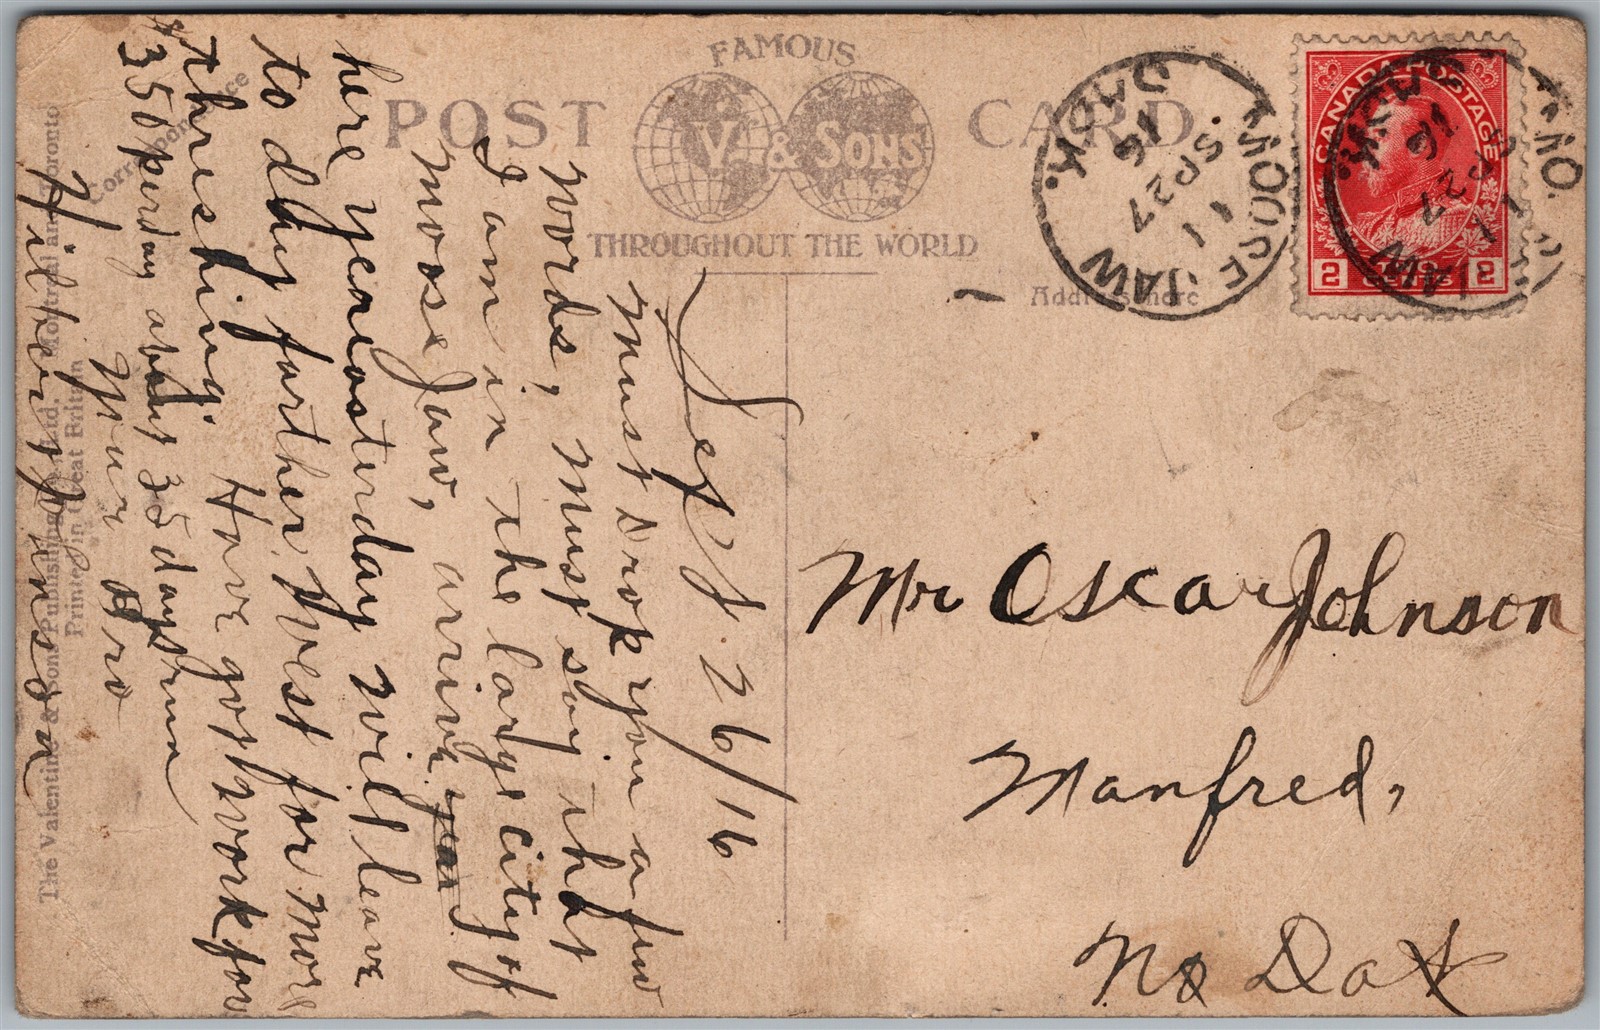 FAMOUS
POST CARD
V. & SONS
THROUGHOUT THE WORLD
Correspondence
Address here
The Valentine & Sons Publishing Co. Ltd. Montreal and Toronto
Printed in Great Britain
CANADA POSTAGE
2 CENTS 2
MOOSE JAW
SASK.
11
SP 27
16
Sept. 26/16
Must drop you a few
words, Must say that
I am in the large city of
Moose Jaw, arrive
here yeneasterday will leave
to day farther West for more
threshing. Have got work for
$350 per day about 35 days run
Your Bro
Mr Oscar Johnson
Manfred,
No Dak